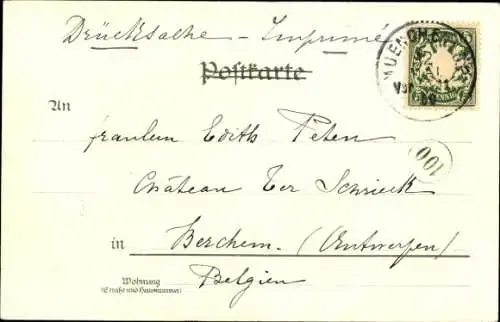 Drücksache - Imprimé
Postkarte
MUENCHEN
An
fraulein Edith Peten
Château Ter Schrieck
in Berchem. (Antwerpen)
Belgien
Wohnung
(Straße und Hausnummer)
100